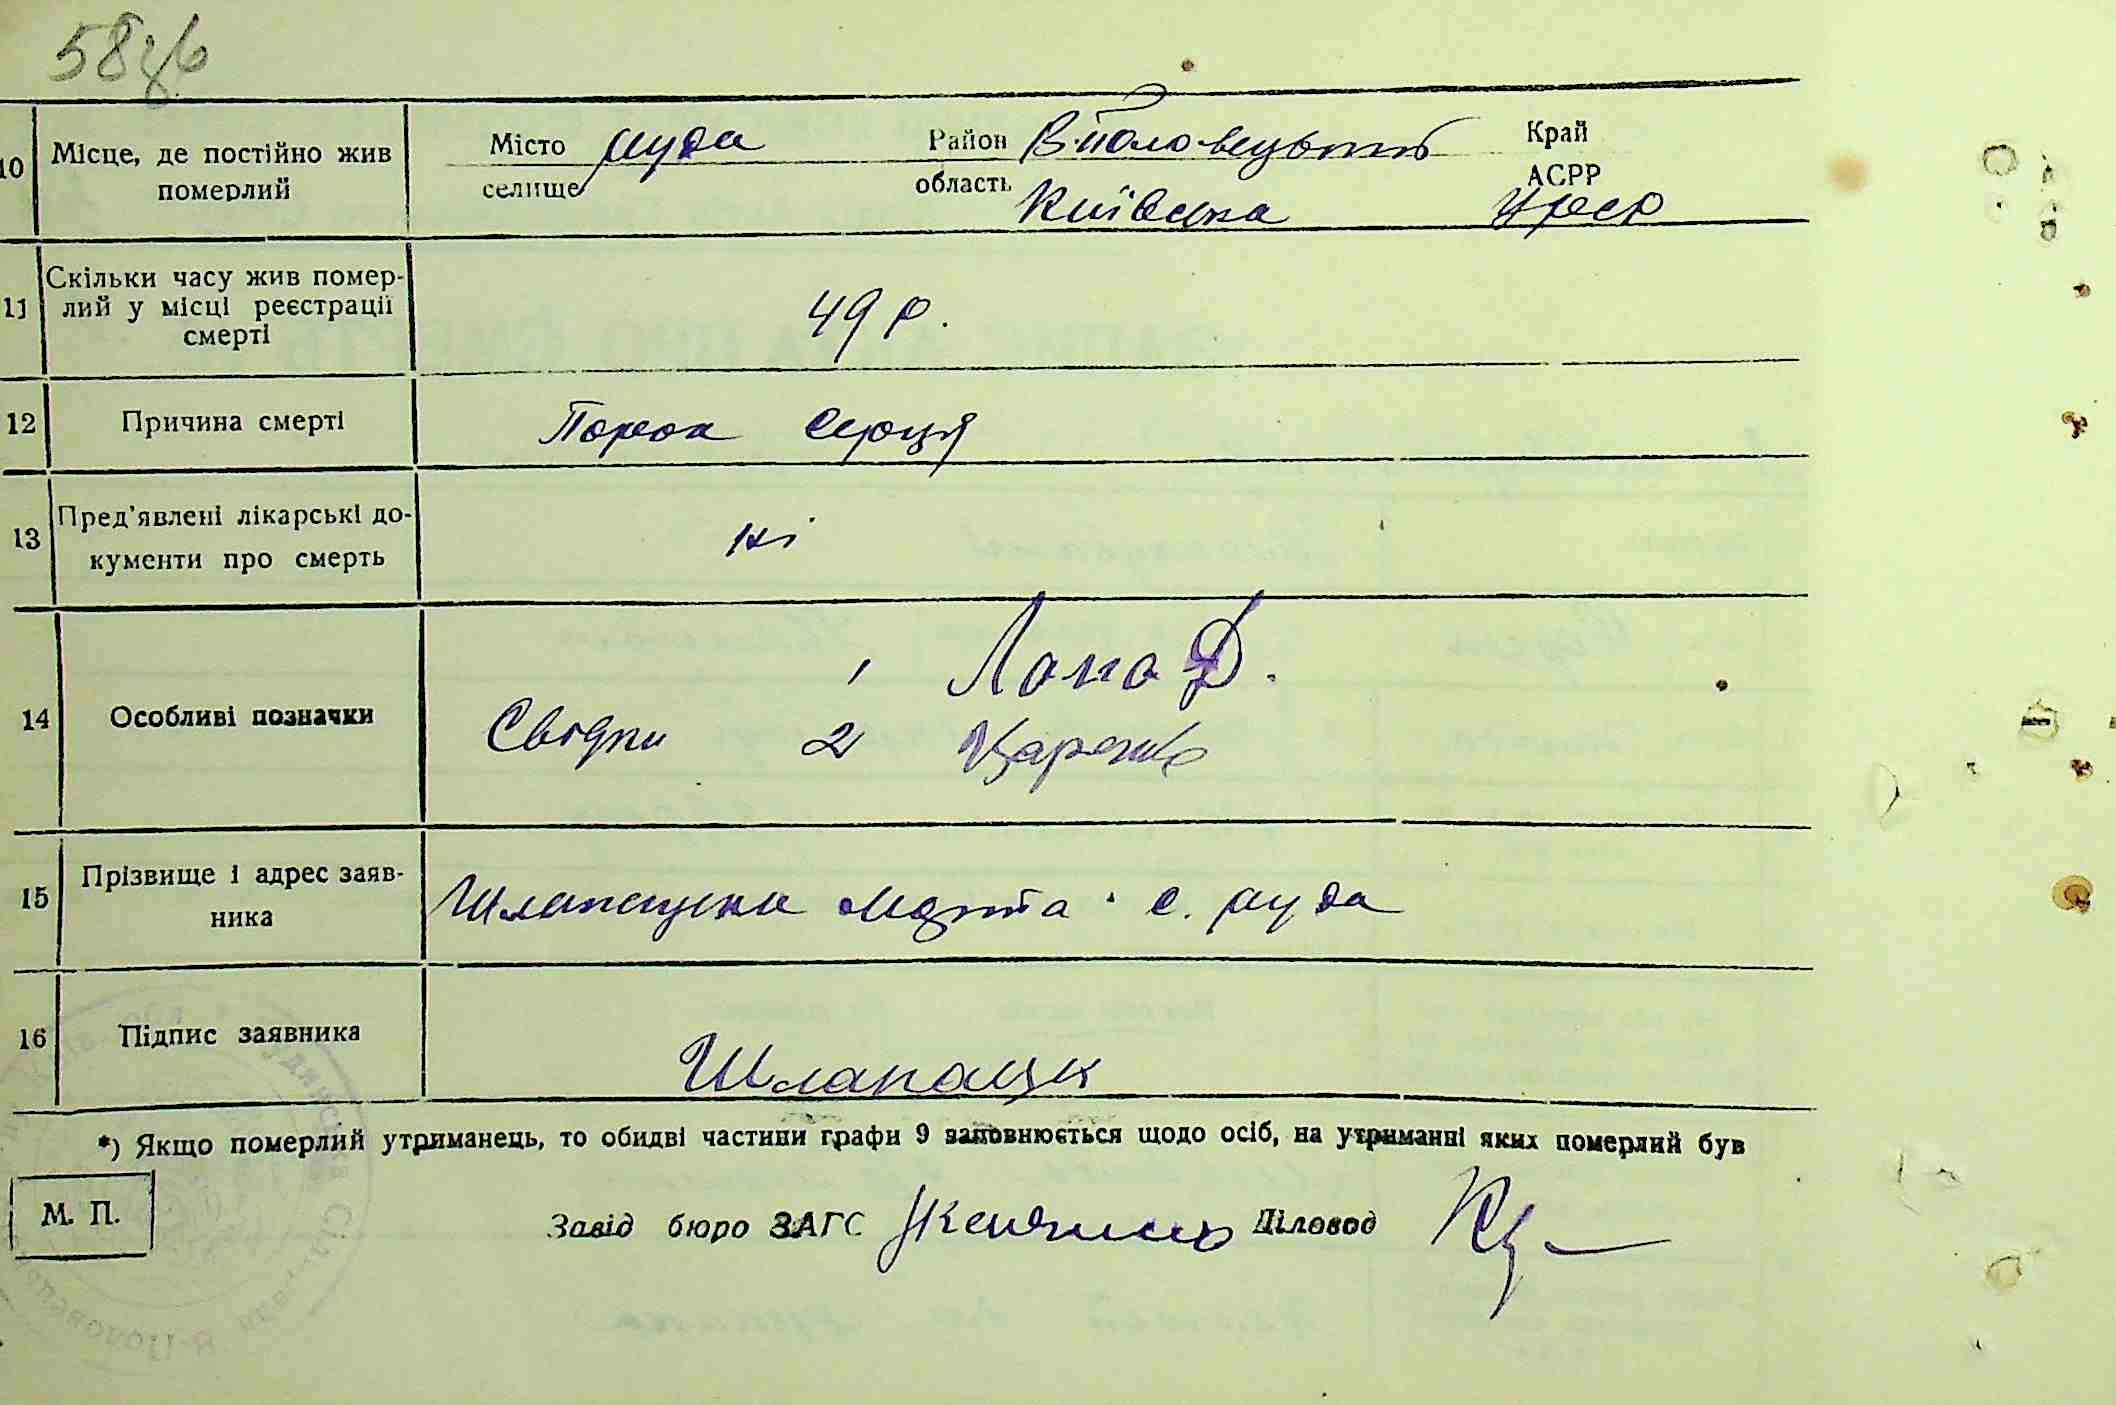 58зв
10 Місце, де постійно жив Місто Руда Район В-Половецький Край
померлий селище область Київська АСРР УРСР
Скільки часу жив помер-
11 лий у місці реєстрації 49 р.
смерті
12 Причина смерті Порок серця
Пред'явлені лікарські до-
13 ні
кументи про смерть
1 Лопа Д.
14 Особливі позначки Свідки 2 Царенко
Прізвище і адрес заяв-
15 с. Руда
ника
16 Підпис заявника
*) Якщо померлий утриманець, то обидві частини графи 9 заповнюється щодо осіб, на утриманні яких померлий був
М. П.
Завід бюро ЗАГС Діловод